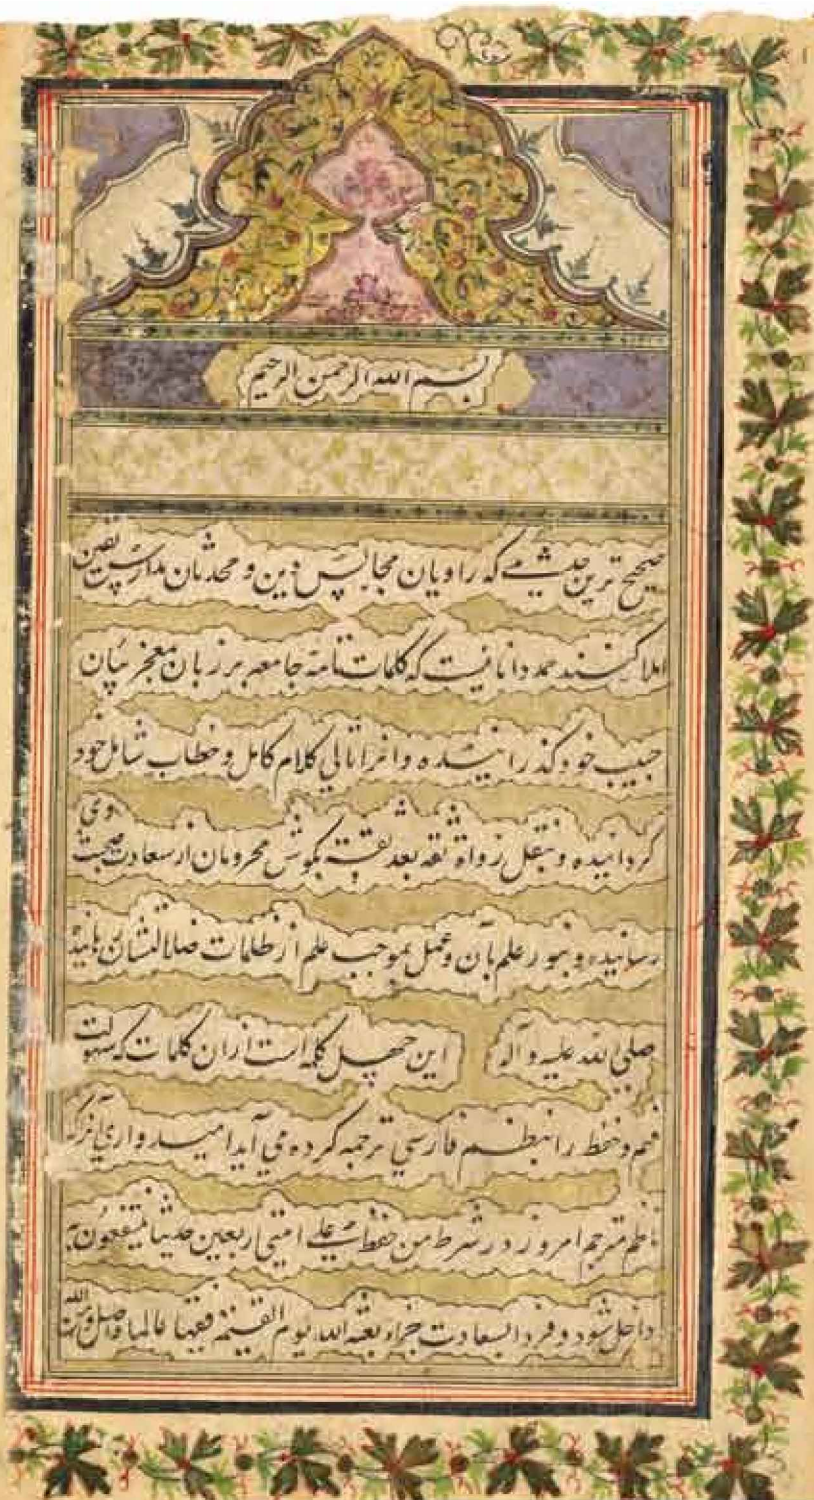 بسم الله الرحمن الرحیم
صحیح ترین حدیثی که راویان مجالس دین و محدثان مدارس یقین
املا کنند حمد داناییست که کلمات تامهٔ جامعه بر زبان معجز بیان
حبیب خود گذرانیده و انرا تالی کلام کامل و خطاب شامل خود
گردانیده و بنقل رواة ثقه بعد ثقته بگوش محرومان از سعادت صحبت وی
رسانیده و بنور علم بآن و عمل بموجب علم از ظلمات ضلالتشان رهانیده
صلی الله علیه و آله این چهل کلمه است ازان کلمات که سهولت
فهم و حفظ را بنظم فارسی ترجمه کرده می آید امیدواری آنکه
ناظم مترجم امروز در شرط من حفظ علی امتی اربعین حدیثا ینتفعون به
داخل شود و فردا بسعادت جزاء بعثه الله یوم القیمة فقیها عالما واصل